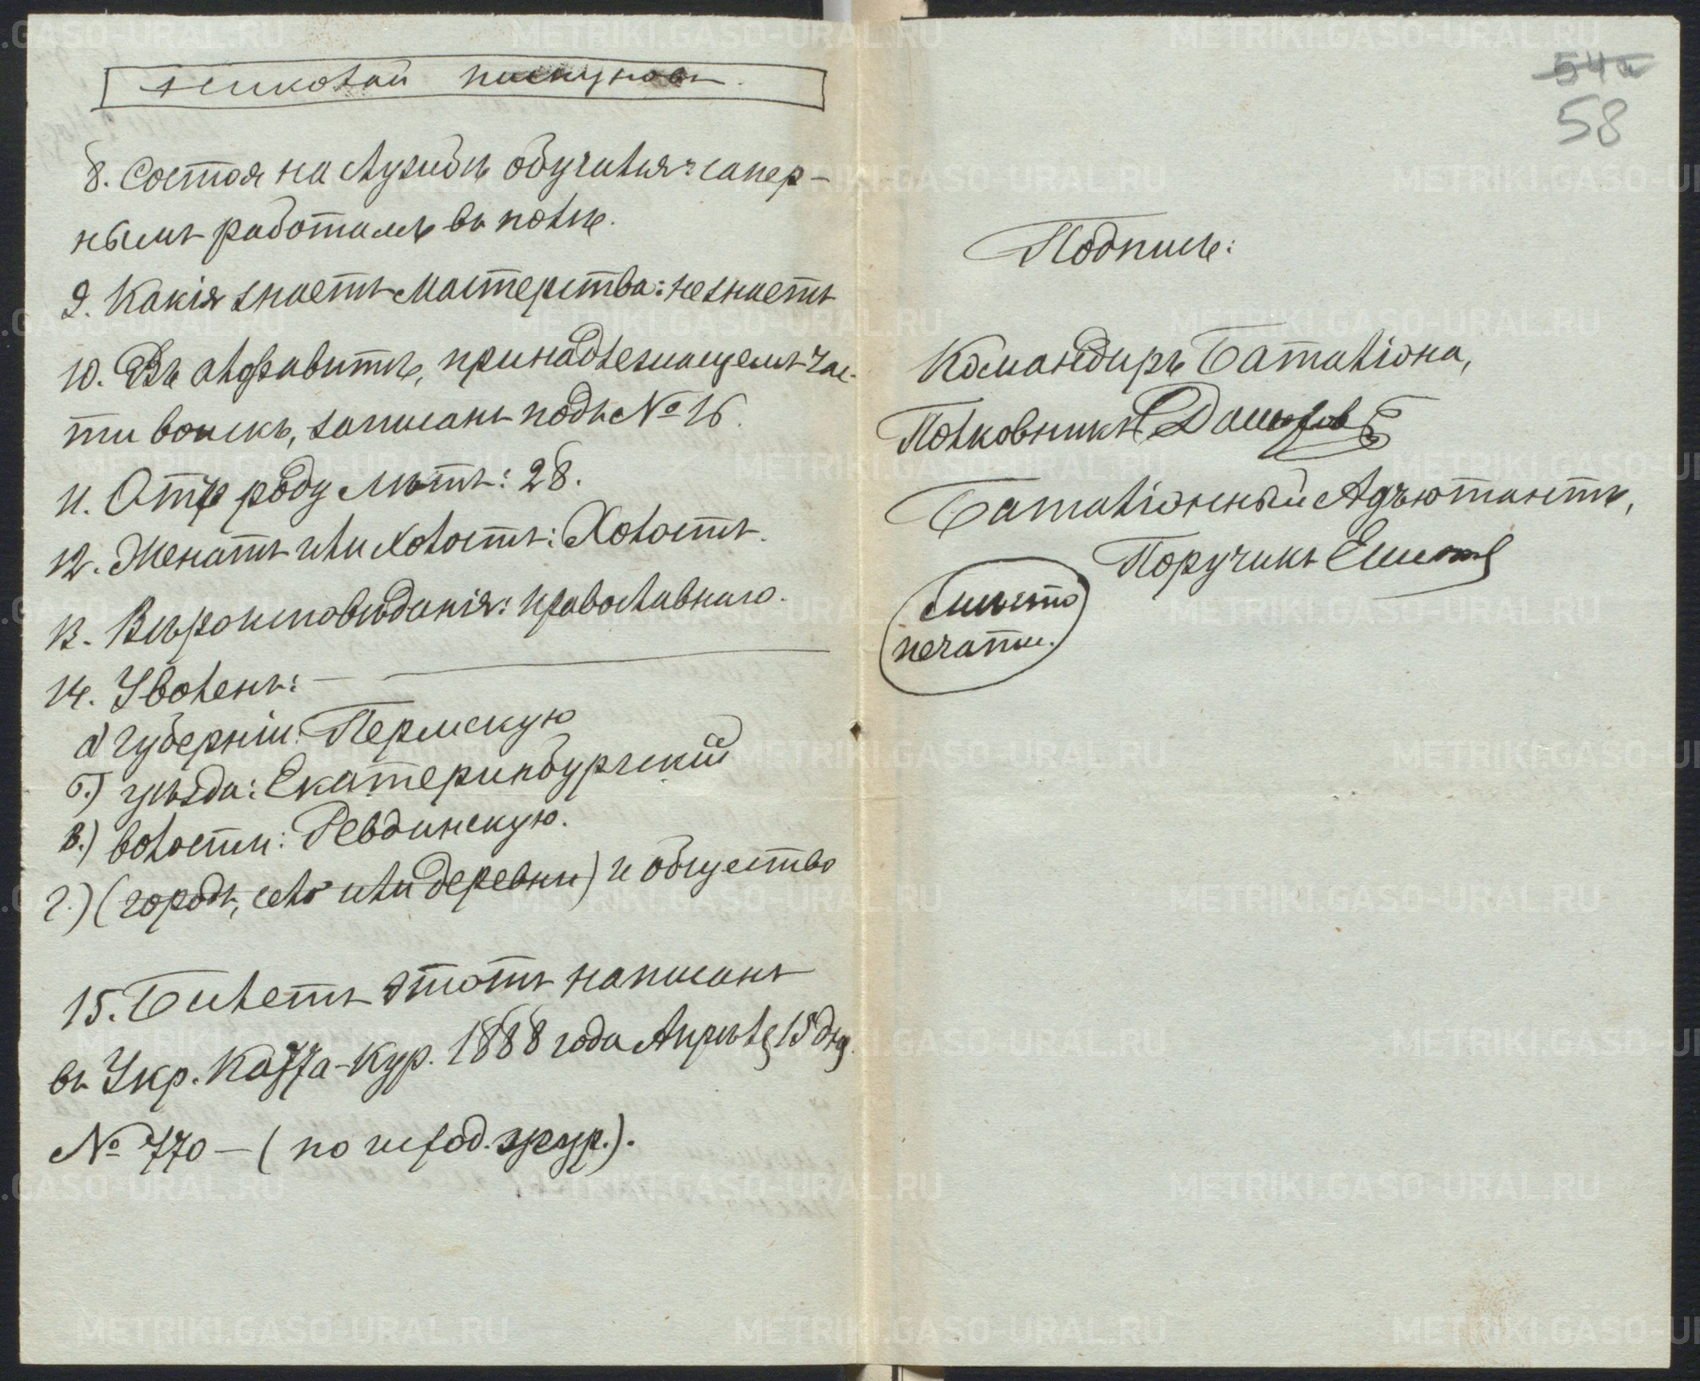 Николай Пискуновъ.
8. Состоя на службѣ обучался: сапер-
нымъ работамъ въ полку.
9. Какія знаетъ мастерства: не знаетъ
10. Въ алфавитѣ, принадлежащемъ час-
ти войскъ, записанъ подъ № 16.
11. Отъ роду лѣтъ: 28.
12. Женатъ или холостъ: Холостъ.
13. Вѣроисповѣданія: православнаго.
14. Уволенъ: —
а) губерніи: Пермскую
б.) уѣзда: Екатеринбургскій
в.) волости: Ревдинскую.
г.) (городъ, село или деревни) и общество
15. Билетъ этотъ написанъ
въ Укр. Каффа-Кур. 1888 года Апрѣля 15 дня
№ 770 — ( по исход. журн.).
54а
58
Подпись:
Командиръ Баталіона,
Полковникъ
Баталіонный Адъютантъ,
Поручикъ
Мѣсто
печати.